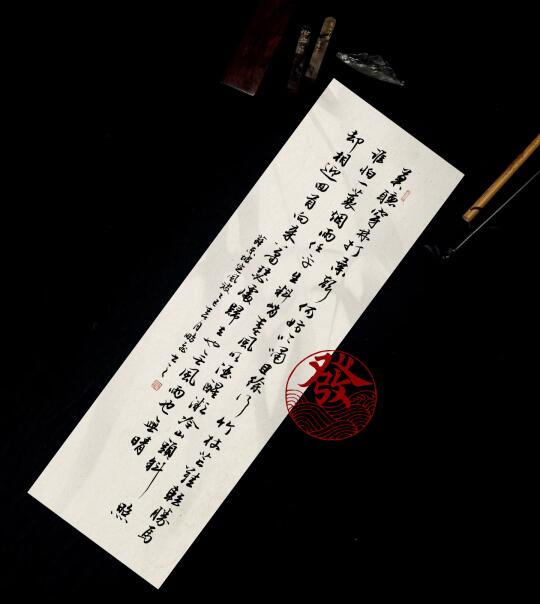 莫聽穿林打葉聲何妨吟嘯且徐行竹杖芒鞋輕勝馬
誰怕一蓑烟雨任平生料峭春風吹酒醒微冷山頭斜照
却相迎回首向來蕭瑟處歸去也無風雨也無晴
蘇東坡定風波
發